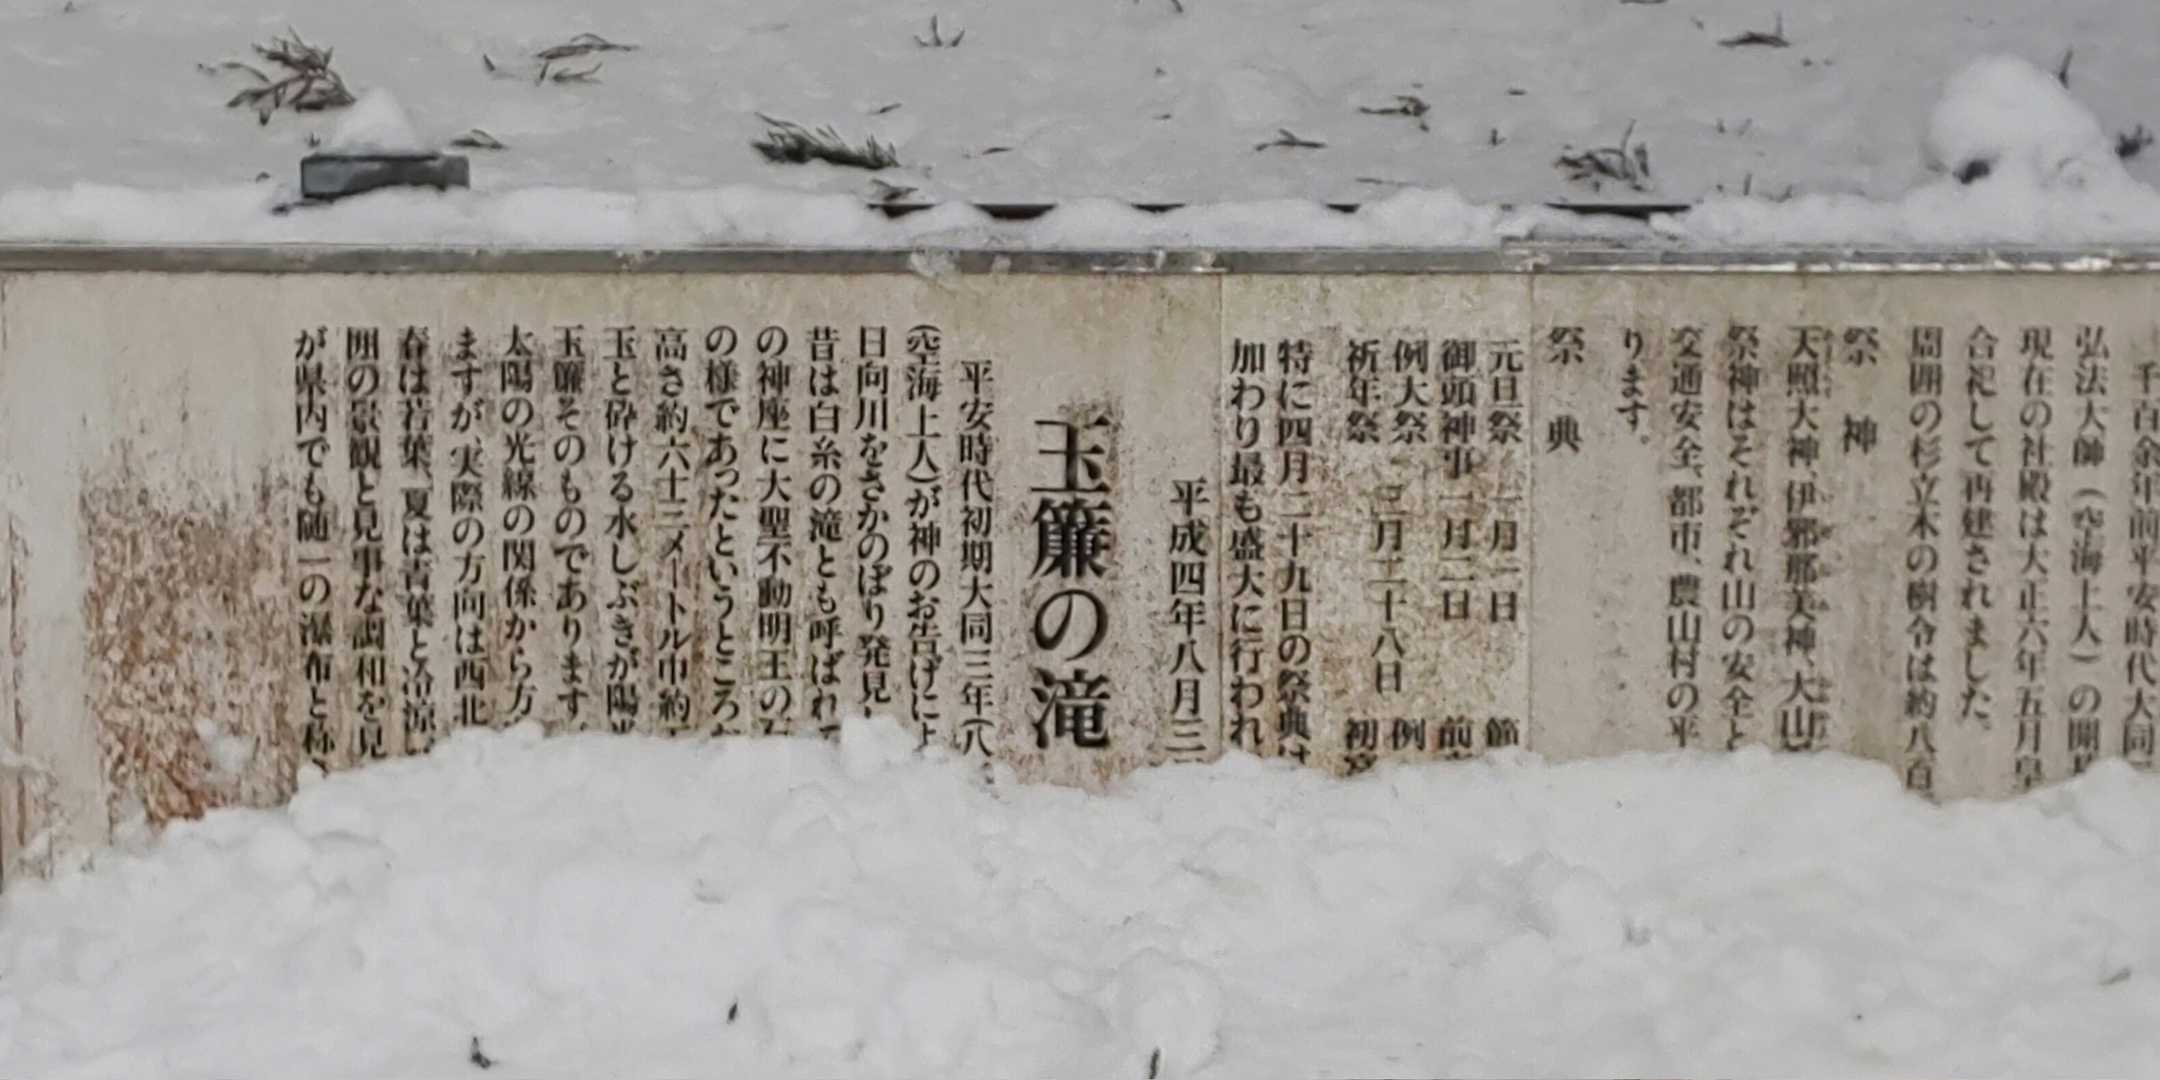 千百余年前平安時代大同
弘法大師（空海上人）の開
現在の社殿は大正六年五月皇
合祀して再建されました。
周囲の杉立木の樹令は約八百
祭 神
天照大神、伊邪那美神、大山
祭神はそれぞれ山の安全と
交通安全、都市、農山村の平
ります。
祭 典
元旦祭 一月一日 節
御頭神事 一月二日 前
例大祭 例
祈年祭 二月二十八日 初
特に四月二十九日の祭典は
加わり最も盛大に行われ
平成四年八月
玉簾の滝
平安時代初期大同三年（八
（空海上人）が神のお告げによ
日向川をさかのぼり発見し
昔は白糸の滝とも呼ばれて
の神座に大聖不動明王の
の様であったというところか
高さ約六十三メートル巾約
玉と砕ける水しぶきが陽光
玉簾そのものであります
太陽の光線の関係から方
ますが、実際の方向は西北
春は若葉、夏は青葉と冷涼
囲の景観と見事な調和を見
が県内でも随一の瀑布と称